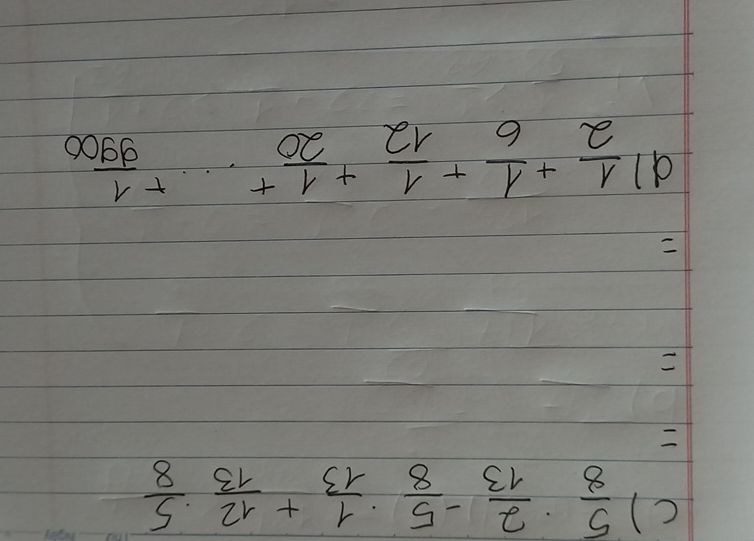 c) 5/8 . 2/13 - 5/8 . 1/13 + 12/13 . 5/8
=
=
=
d) 1/2 + 1/6 + 1/12 + 1/20 + ... + 1/9900